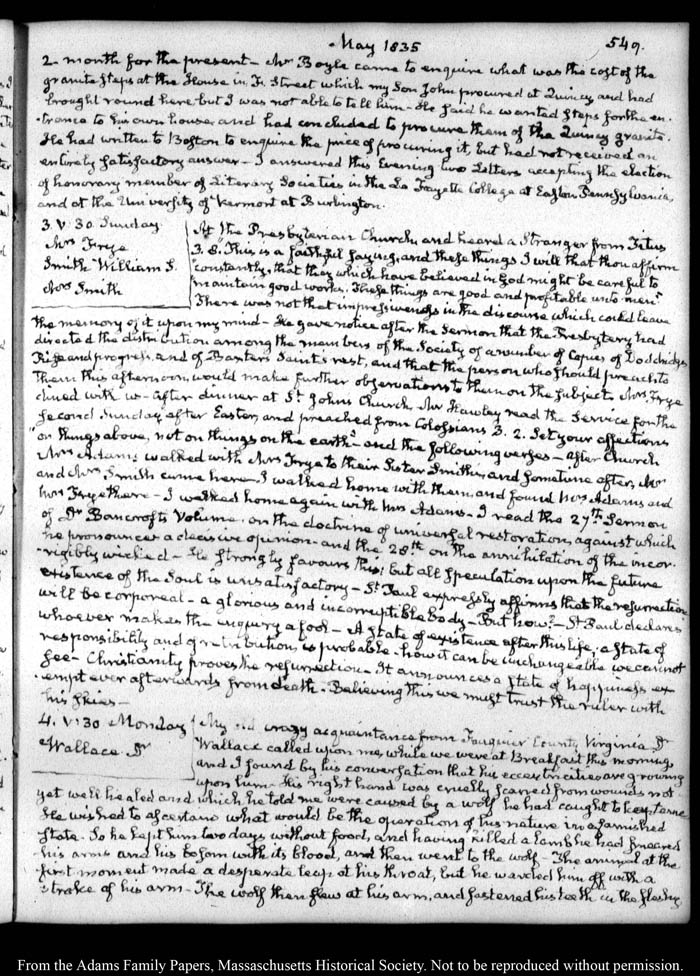 May 1835
549.
2. month for the present — Mr Boyle came to enquire what was the cost of the
granite steps at the House in F. Street which my Son John procured at Quincy and had
brought round here but I was not able to tell him — He said he wanted steps for the en-
-trance to his own house, and had concluded to procure them of the Quincy granite.
He had written to Boston to enquire the price of procuring it, but had not received an
entirely satisfactory answer — I answered this Evening two Letters accepting the election
of honorary member of Literary Societies in the La Fayette College at Easton Pennsylvania,
and at the University of Vermont at Burlington.
3. V: 30. Sunday
Mrs Frye
Smith William S.
Mrs Smith
At the Presbyterian Church, and heard a Stranger from Titus
3. 8. "This is a faithful saying, and these things I will that thou affirm
"constantly, that they which have believed in God might be careful to
"maintain good works. These things are good and profitable unto men"
There was not that impressiveness in the discourse which could leave
the memory of it upon my mind — He gave notice after the Sermon that the Presbytery had
directed the distribution among the members of the Society of a number of Copies of Doddridge's
Rise and progress, and of Baxter's Saint's rest, and that the person who should preach to
them this afternoon, would make further observations to them on the subject. Mrs Frye
dined with us — after dinner at St John's Church, Mr Hawley read the Service for the
second Sunday after Easter, and preached from Colossians 3. 2. Set your affections
"on things above, not on things on the earth" — and the following verses — After Church
Mrs Adams walked with Mrs Frye to their Sister Smith's, and sometime after, Mr
and Mrs Smith came here — I walked home with them, and found Mrs Adams and
Mrs Frye there — I walked home again with Mrs Adams — I read the 27th Sermon
of Dr Bancroft's Volume, on the doctrine of universal restoration, against which
he pronounces a decisive opinion — and the 28th on the annihilation of the incor-
-rigibly wicked — He strongly favours this; but all speculation upon the future
existence of the Soul is unsatisfactory — St Paul expressly affirms that the resurrection
will be corporeal — a glorious and incorruptible body — But how? — St Paul declares
whoever makes the enquiry a fool — A state of existence after this life, a state of
responsibility and of retribution, is probable — how it can be unchangeable we cannot
see — Christianity proves the resurrection — It announces a state of happiness ex-
-empt ever afterwards from death — Believing this we must trust the ruler with
his skies —
4. V: 30. Monday
Wallace. Dr
My old crazy acquaintance from Fauquier County, Virginia Dr
Wallace called upon me, while we were at Breakfast this morning,
and I found by his conversation that his eccentricities are growing
upon him — His right hand was cruelly scarred from wounds not
yet well healed and which he told me were caused by a wolf he had caught to keep tame
He wished to ascertain what would be the operation of his nature in a famished
State. So he kept him two days without food, and having killed a lamb he had smeared
his arms and his bosom with its blood, and then went to the wolf — The animal at the
first moment made a desperate leap at his throat, but he warded him off with a
stroke of his arm — The wolf then flew at his arm, and fastened his teeth in the fleshy
From the Adams Family Papers, Massachusetts Historical Society. Not to be reproduced without permission.